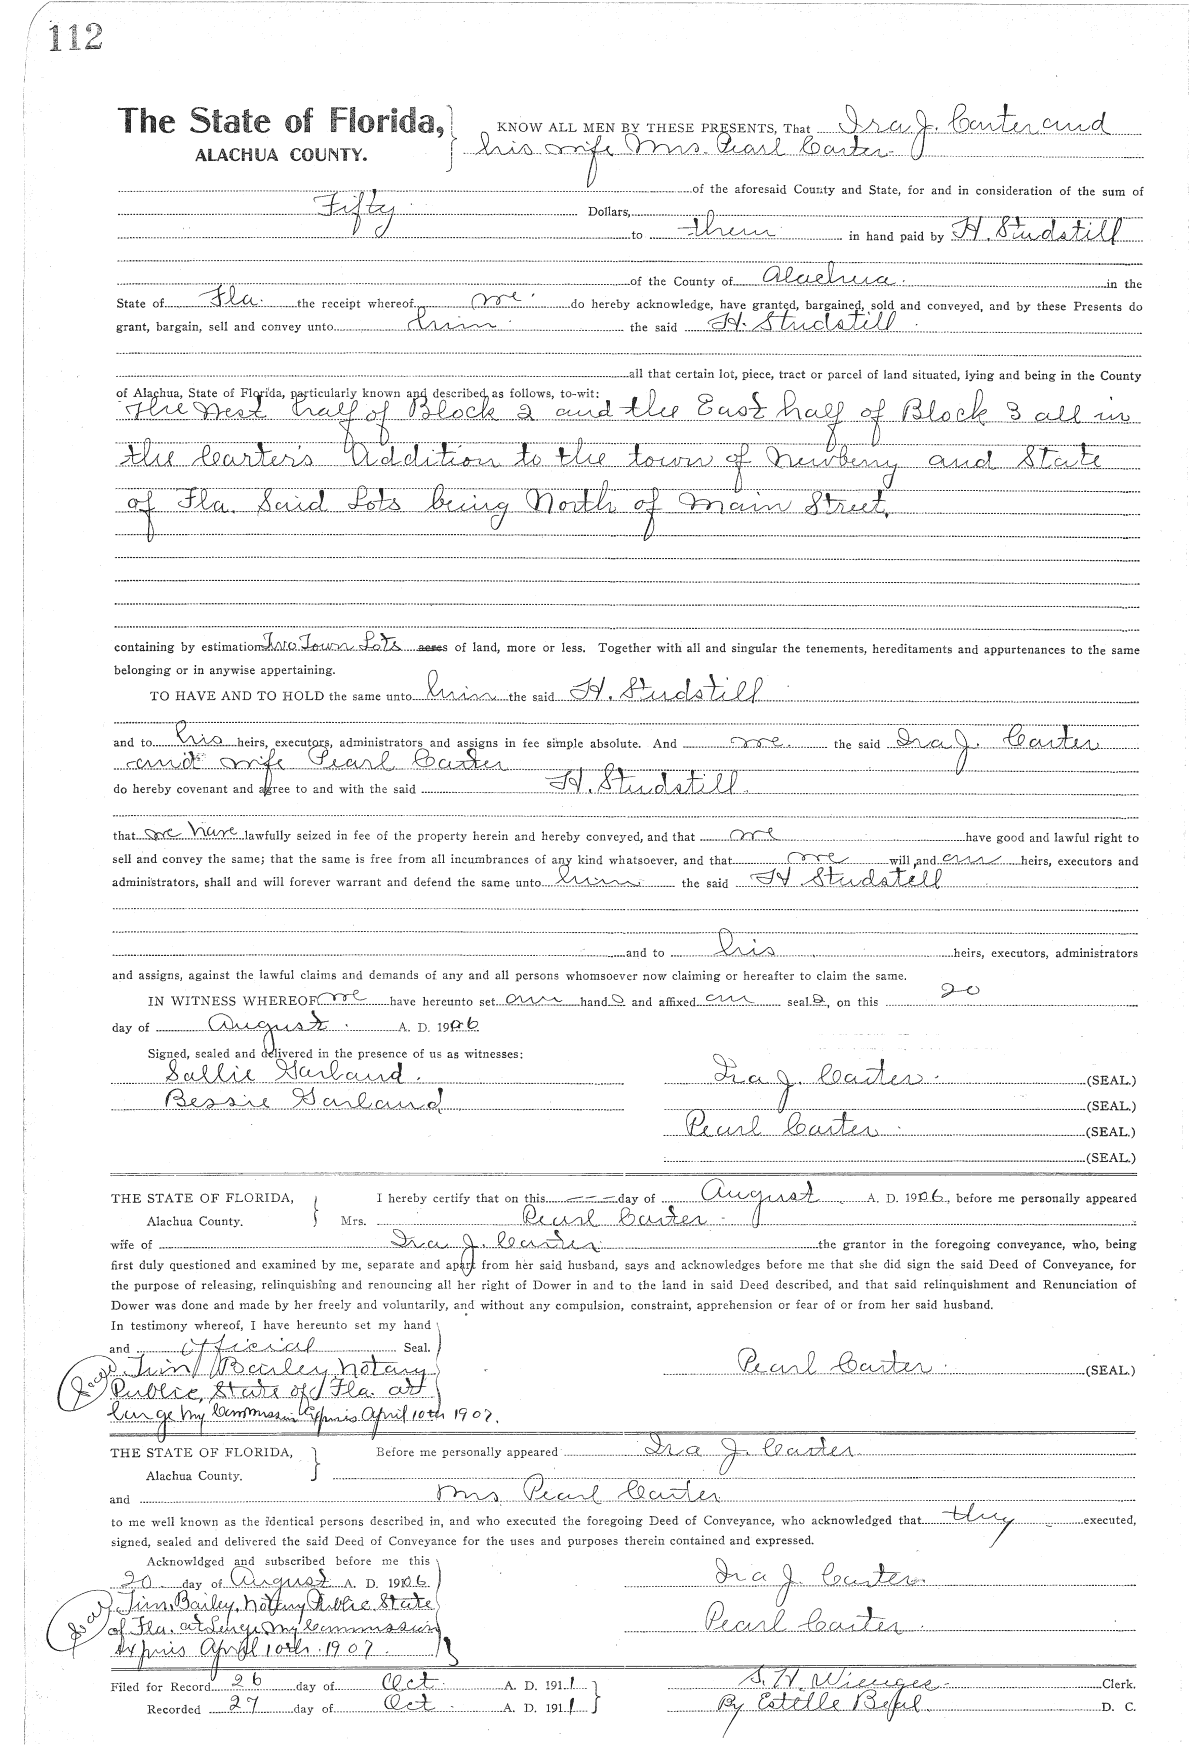 112
The State of Florida, KNOW ALL MEN BY THESE PRESENTS, That Ira J. Carter and
ALACHUA COUNTY. his wife Mrs. Pearl Carter
of the aforesaid County and State, for and in consideration of the sum of
Fifty Dollars,
to them in hand paid by H. Studstill
of the County of Alachua. in the
State of Fla. the receipt whereof we do hereby acknowledge, have granted, bargained, sold and conveyed, and by these Presents do
grant, bargain, sell and convey unto him the said H. Studstill
all that certain lot, piece, tract or parcel of land situated, lying and being in the County
of Alachua, State of Florida, particularly known and described as follows, to-wit:
The West half of Block 2 and the East half of Block 3 all in
the Carter's Addition to the town of Newberry and State
of Fla. Said Lots being North of Main Street.
containing by estimation Two Town Lots acres of land, more or less. Together with all and singular the tenements, hereditaments and appurtenances to the same
belonging or in anywise appertaining.
TO HAVE AND TO HOLD the same unto him the said H. Studstill
and to his heirs, executors, administrators and assigns in fee simple absolute. And we the said Ira J. Carter
and wife Pearl Carter
do hereby covenant and agree to and with the said H. Studstill.
that we have lawfully seized in fee of the property herein and hereby conveyed, and that we have good and lawful right to
sell and convey the same; that the same is free from all incumbrances of any kind whatsoever, and that we will and our heirs, executors and
administrators, shall and will forever warrant and defend the same unto him the said H Studstill
and to his heirs, executors, administrators
and assigns, against the lawful claims and demands of any and all persons whomsoever now claiming or hereafter to claim the same.
IN WITNESS WHEREOF we have hereunto set our hands and affixed our seals, on this 20
day of August A. D. 1906
Signed, sealed and delivered in the presence of us as witnesses:
Sallie Garland. Ira J. Carter. (SEAL.)
Bessie Garland (SEAL.)
Pearl Carter (SEAL.)
(SEAL.)
THE STATE OF FLORIDA, I hereby certify that on this --- day of August A. D. 1906, before me personally appeared
Alachua County. Mrs. Pearl Carter
wife of Ira J. Carter the grantor in the foregoing conveyance, who, being
first duly questioned and examined by me, separate and apart from her said husband, says and acknowledges before me that she did sign the said Deed of Conveyance, for
the purpose of releasing, relinquishing and renouncing all her right of Dower in and to the land in said Deed described, and that said relinquishment and Renunciation of
Dower was done and made by her freely and voluntarily, and without any compulsion, constraint, apprehension or fear of or from her said husband.
In testimony whereof, I have hereunto set my hand
and official Seal.
Jim Bailey, Notary Pearl Carter (SEAL)
Public, State of Fla. at
Large My Commission Expires April 10th 1907.
THE STATE OF FLORIDA, Before me personally appeared Ira J. Carter
Alachua County.
and Mrs Pearl Carter
to me well known as the identical persons described in, and who executed the foregoing Deed of Conveyance, who acknowledged that they executed,
signed, sealed and delivered the said Deed of Conveyance for the uses and purposes therein contained and expressed.
Acknowldged and subscribed before me this
20 day of August A. D. 1906 Ira J. Carter
Seal Jim Bailey, Notary Public State
of Fla. at Large My Commission Pearl Carter
Expires April 10th 1907.
Filed for Record 26 day of Oct. A. D. 1911 S. H. Wienges Clerk.
Recorded 27 day of Oct. A. D. 1911 By Estelle D. C.